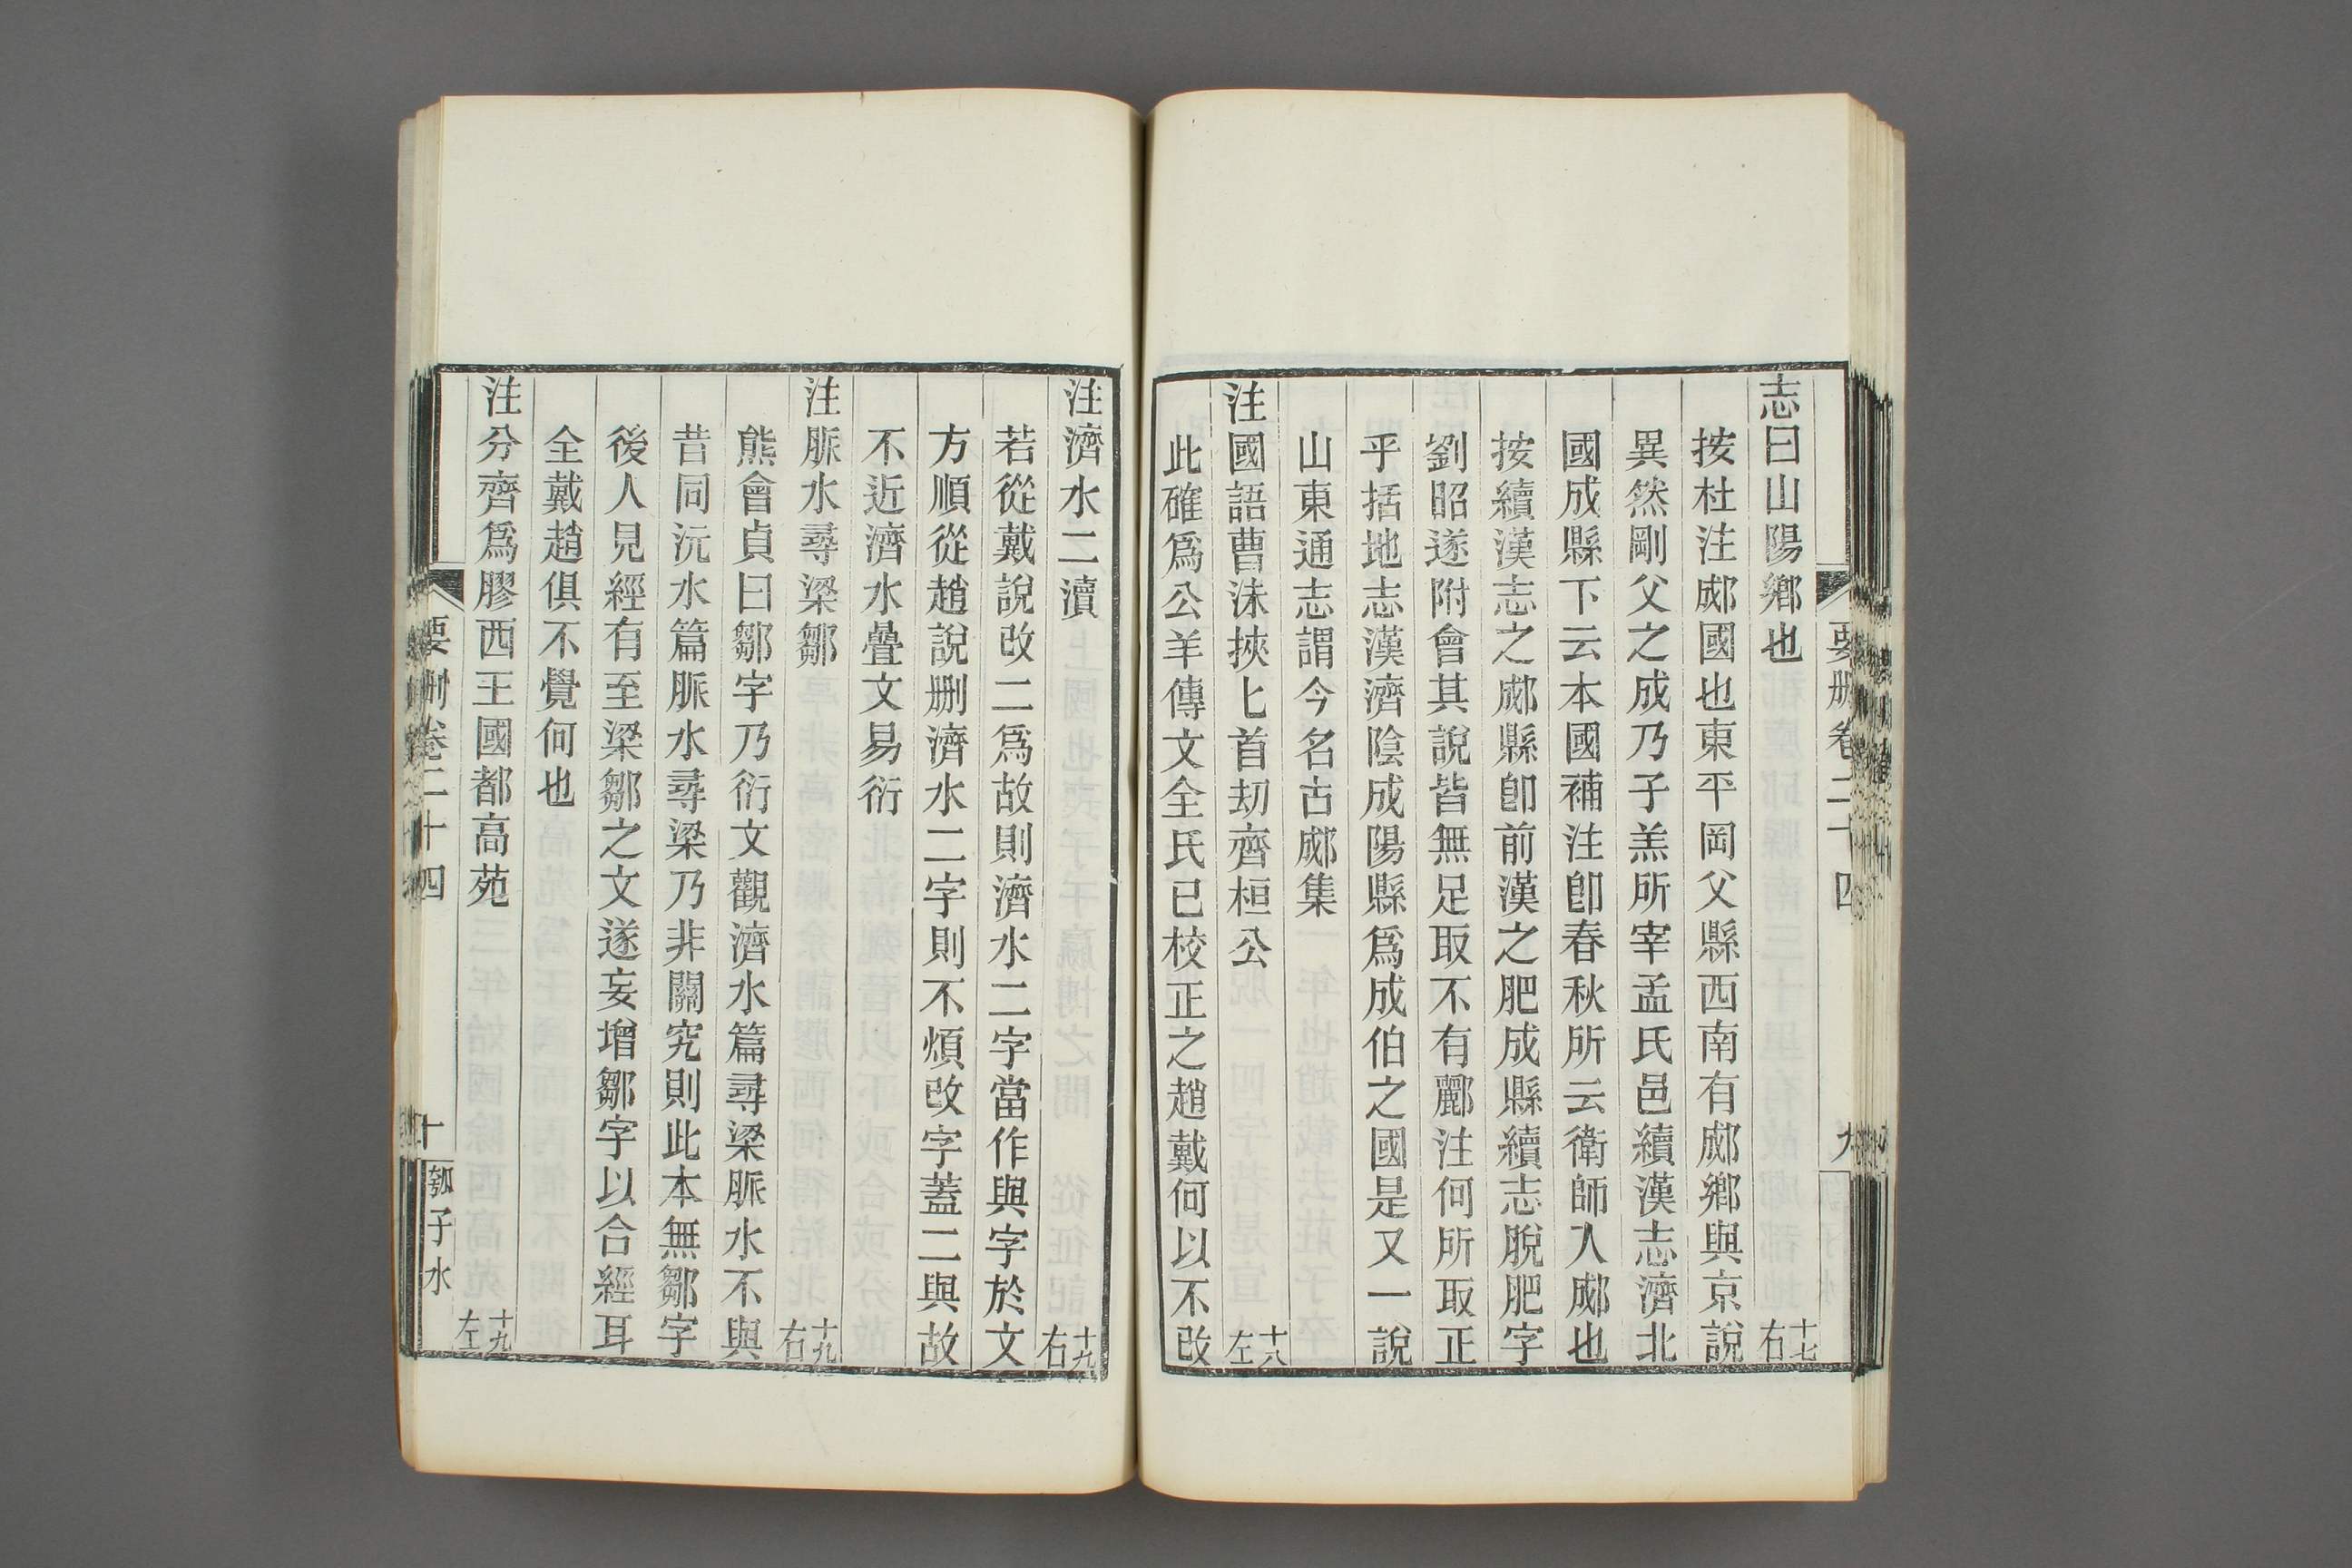 志曰山陽鄉也 十七右
按杜注郕國也東平岡父縣西南有郕鄉與京說
異然剛父之成乃子羔所宰孟氏邑續漢志濟北
國成縣下云本國補注卽春秋所云衛師入郕也
按續漢志之郕縣卽前漢之肥成縣續志脫肥字
劉昭遂附會其說皆無足取不有酈注何所取正
乎括地志漢濟陰成陽縣爲成伯之國是又一說
山東通志謂今名古郕集
注國語曹沬挾匕首刧齊桓公 十八左
此確爲公羊傳文全氏已校正之趙戴何以不改
要刪卷二十四
九
注濟水二瀆 十九右
若從戴說改二爲故則濟水二字當作與字於文
方順從趙說刪濟水二字則不煩改字蓋二與故
不近濟水疊文易衍
注脈水尋梁鄒 十九右
熊會貞曰鄒字乃衍文觀濟水篇尋梁脈水不與
昔同沅水篇脈水尋梁乃非關究則此本無鄒字
後人見經有至梁鄒之文遂妄增鄒字以合經耳
全戴趙俱不覺何也
注分齊爲膠西王國都高苑 十九左
要刪卷二十四
十
瓠子水